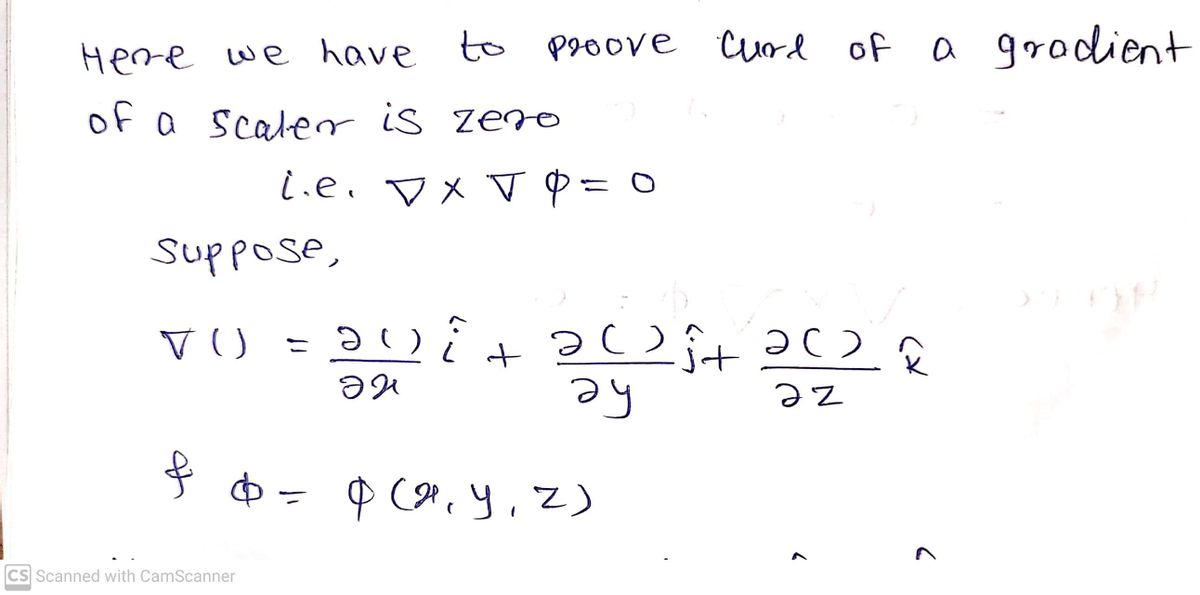 Here we have to proove curl of a gradient
of a scaler is zero
i.e. ∇ × ∇ φ = 0
suppose,
∇ () = ∂()/∂x î + ∂()/∂y ĵ + ∂()/∂z k̂
& φ = φ (x, y, z)
CS Scanned with CamScanner